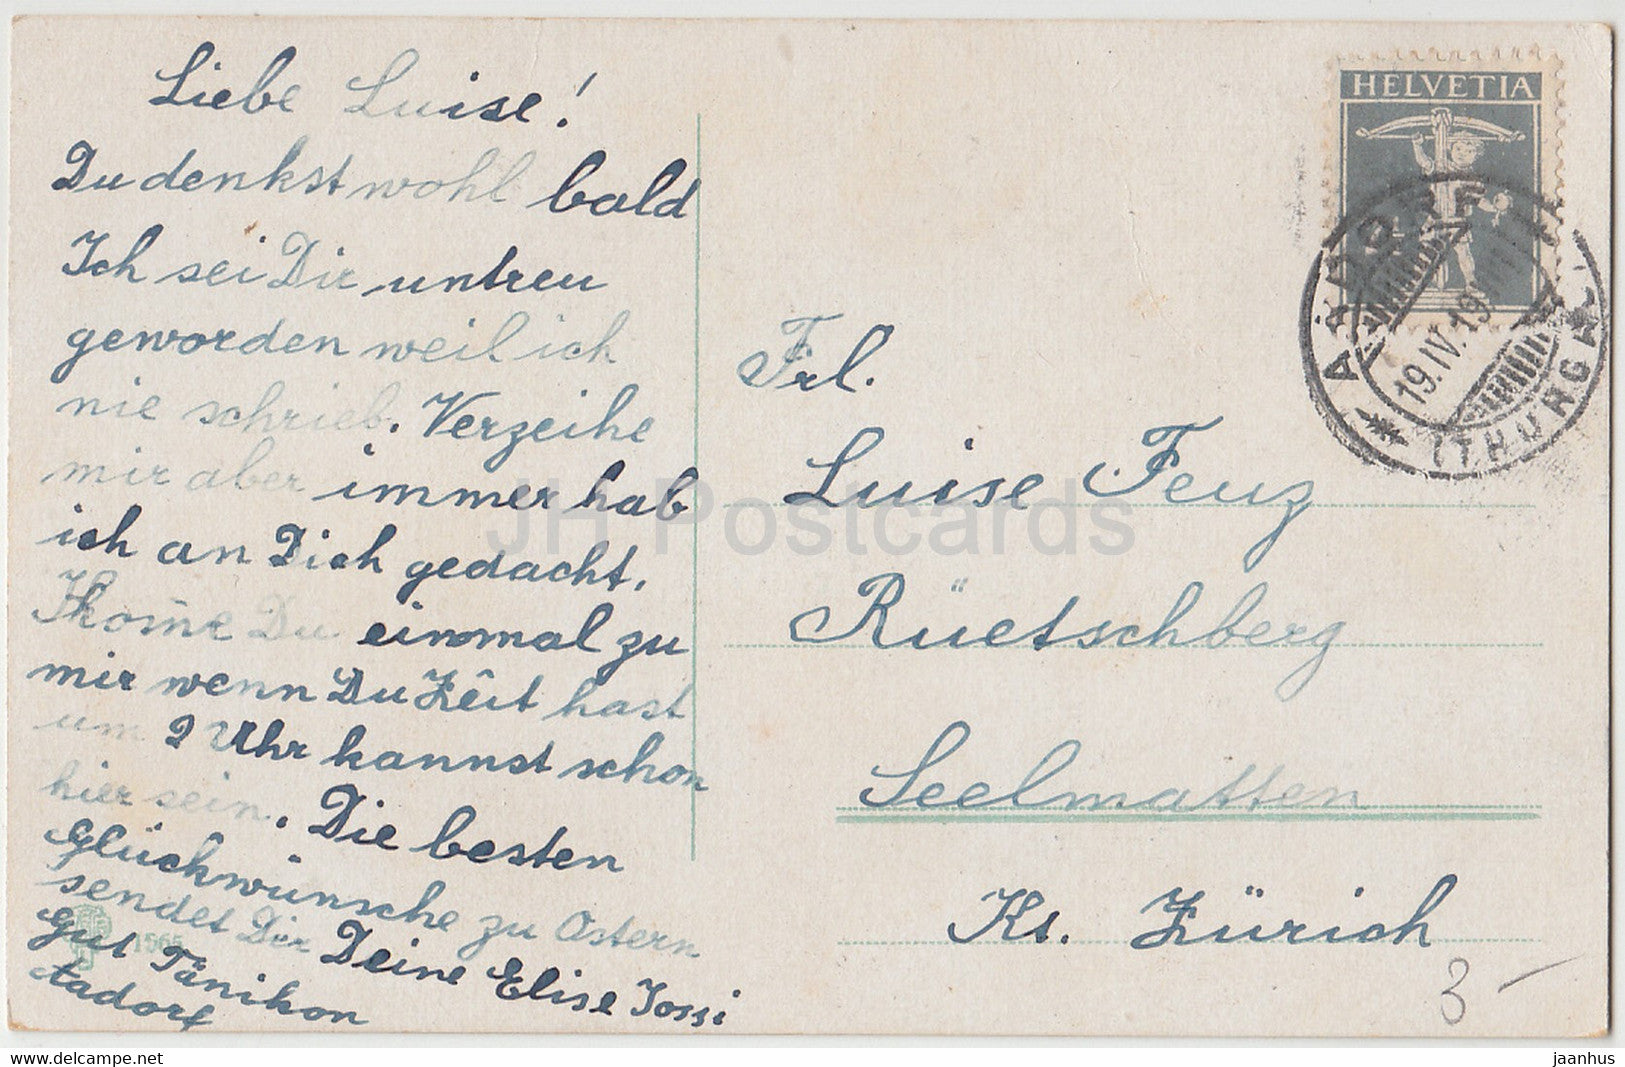 Liebe Luise!
Du denkst wohl bald
Ich sei Dir untreu
geworden weil ich
nie schrieb. Verzeihe
mir aber immer hab
ich an Dich gedacht.
Kome Du einmal zu
mir wenn Du Zeit hast
um 2 Uhr kannst schon
hier sein. Die besten
Glückwünsche zu Ostern
sendet Dir Deine Elise Jossi
Gut Tänikon
Aadorf
1565
HELVETIA
AADORF
19.IV.19
(THURGAU)
Frl.
Luise Feuz
Rüetschberg
Seelmatten
Kt. Zürich
3 –
JH Postcards
www.delcampe.net
jaanhus